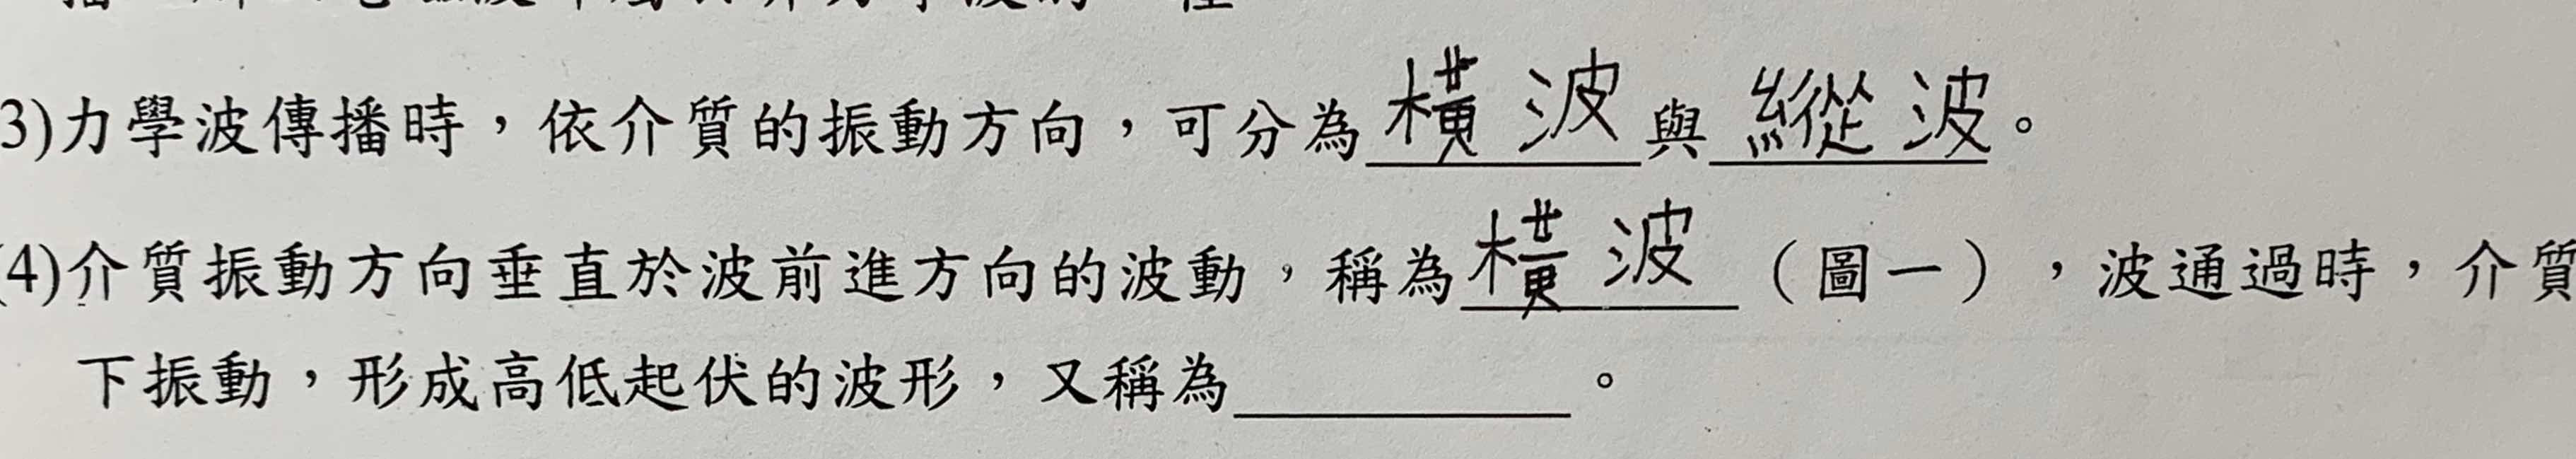 3)力學波傳播時，依介質的振動方向，可分為橫波與縱波。
(4)介質振動方向垂直於波前進方向的波動，稱為橫波（圖一），波通過時，介質
下振動，形成高低起伏的波形，又稱為＿＿＿＿＿。